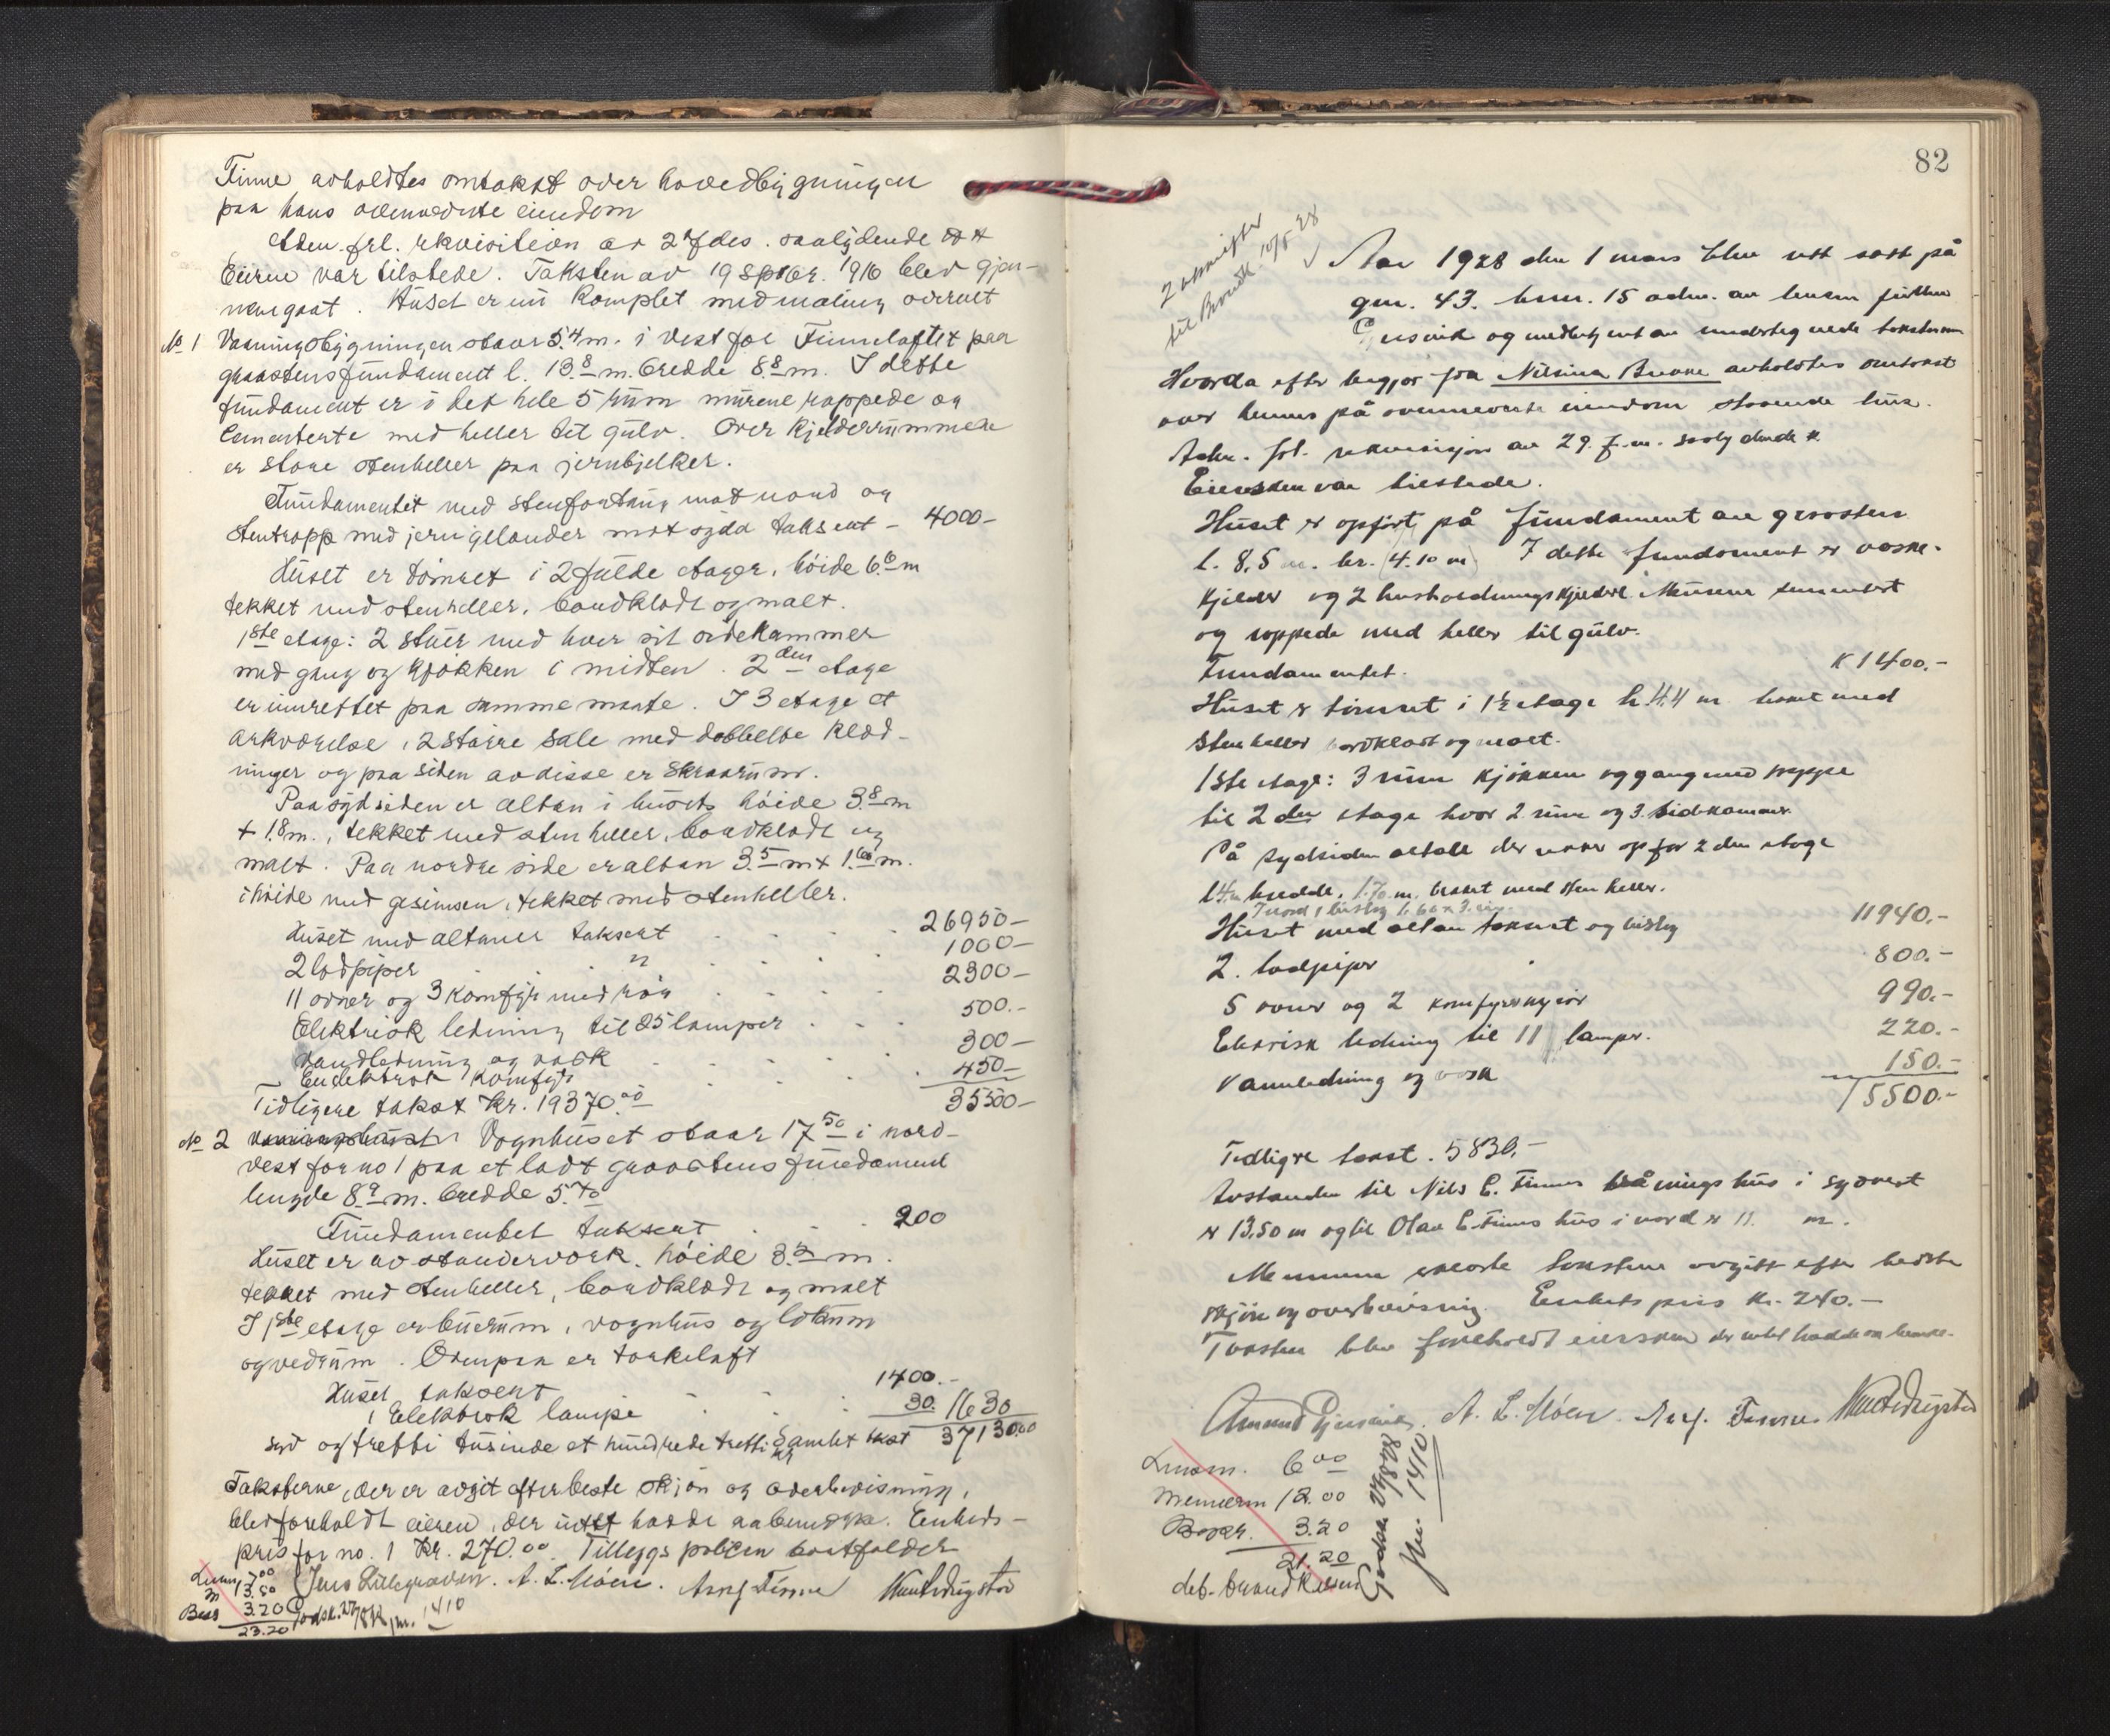 Finne avholdtes omtakst over hovedbygningen
paa hans ovennævnte eiendom
Aden. frl. rekvisition av 27 des. saalydende
Eierne var tilstede. Taksten av 19 septbr. 1916 blev gjen-
nemgaat. Huset er nu komplet med maling overalt
No 1 Vaaningsbygningen staar 5.4 m. i vest for Finneloftet paa
graastensfundament l. 13.8 m. bredde 8.8 m. I dette
fundament er i det hele 5 rum murene rappede og
cementerte med heller til gulv. Over kjelderrummene
er store stenheller paa jernbjelker.
Fundamentet med stenfortaug mot nord og
stentrapp med jerngelænder mot syda taksert - 4000-
Huset er tømret i 2 fulde etager, høide 6.6 m
tekket med stenheller, bordklædt og malt.
1ste etage: 2 stuer med hver sit sidekammer
med gang og kjøkken i midten. 2den etage
er innrettet paa samme maate. I 3 etage et
arkværelse, 2 større sale med dobbelte klæd-
ninger og paa siden av disse er skraarum.
Paa sydsiden er altan i husets høide 3.8 m
+ 1.8 m., tekket med stenheller, bordklædt og
malt. Paa nordre side er altan 3.5 m + 1.60 m.
i høide med gesimsen, tekket med stenheller.
Huset med altaner taksert 26950-
2 lodpiper " 1000-
11 ovner og 3 komfyr med rør 2300-
Elektrisk ledning til 25 lamper 500.-
Vandledning og vask 300-
En elektrisk komfyr 450-
Tidligere takst Kr. 19370.00 35500-
No 2 Vognhuset staar 17.50 i nord-
vest for no 1 paa et lødt graastensfundament
lengde 8.9 m. bredde 5.40
Fundamentet taksert 200
Huset er av standerverk, høide 3.5 m.
tekket med stenheller, bordklædt og malt
I 1ste etage er buerum, vognhus og
og vedrum. Ovenpaa er tørkeloft
Huset taksert 1400.-
1 Elektrisk lampe 30. 1630
syv og tretti tusinde et hundrede tretti kr Samlet takst 37130.00
Taksterne, der er avgit efter beste skjøn og overbevisning,
blev foreholdt eieren, der intet hadde aa bemerke. Enheds-
pris for no. 1 Kr. 270.00. Tillegspolicen bortfalder
Jens Lillegraven. A. L. Móen. Arng Finne Knut Dugstad
Lensm 7.00
m 13.50
Bess 3.20
23.20
1410
82
2 utskrifter
til Brandk. 10/5 28
Aar 1928 den 1 mars blev ett satt på
gnr. 43. bnr. 15 adm. av lensm fullm
Gjersvik og medbetjent av undertegnede takstmenn
Hvorda efter begjær fra Nilsina Brekke avholdtes omtakst
over hennes på ovennevnte eiendom staaende hus.
Adm. fol. rekvisisjon av 29. f.m. saalydende
Eiersken var tilstede.
Huset er opført på fundament av graasten
l. 8.5 m. br. 4.10 m I dette fundament er vaske-
kjelder og 2 husholdningskjeldere. Murene sementert
og rappede med heller til gulv.
Fundamentet. K 1400.-
Huset er tømret i 1½ etage h. 4.4 m tekket med
stenheller bordklædt og malt.
1ste etage: 3 rum kjøkken og gang med trappe
til 2den etage hvor 2 rum og 3 sidekammer.
På sydsiden altan der rekker op for 2den etage
bredde, 1.70 m. tekket med stenheller.
I nord 1 bislag 1.60 x
Huset med altan takseret og bislag 11940.-
2. lodpiper 800.-
5 ovner og 2 komfyrer 990.-
Elektrisk ledning til 11 lamper. 220.-
Vannledning og vask 150.-
15500.-
Tidligre takst. 5830,-
Avstanden til Nils E. Finnes våningshus i sydvest
er 13,50 m og til Olav E. Finnes hus i nord er 11. m.
Mennene erklærte taksten avgitt efter bedste
skjøn og overbevisning. Enhetspris kr. 240.-
Taksten blev foreholdt eiersken der intet hadde at bemerke.
Amund Gjersvik. A. L. Móen. Arng. Finne. Knut Dugstad
Lensm. 6.00
Mennerm 12.00
Besør. 3.20
21.20
deb. brandkassen
Godskr.
Jnr. 1410